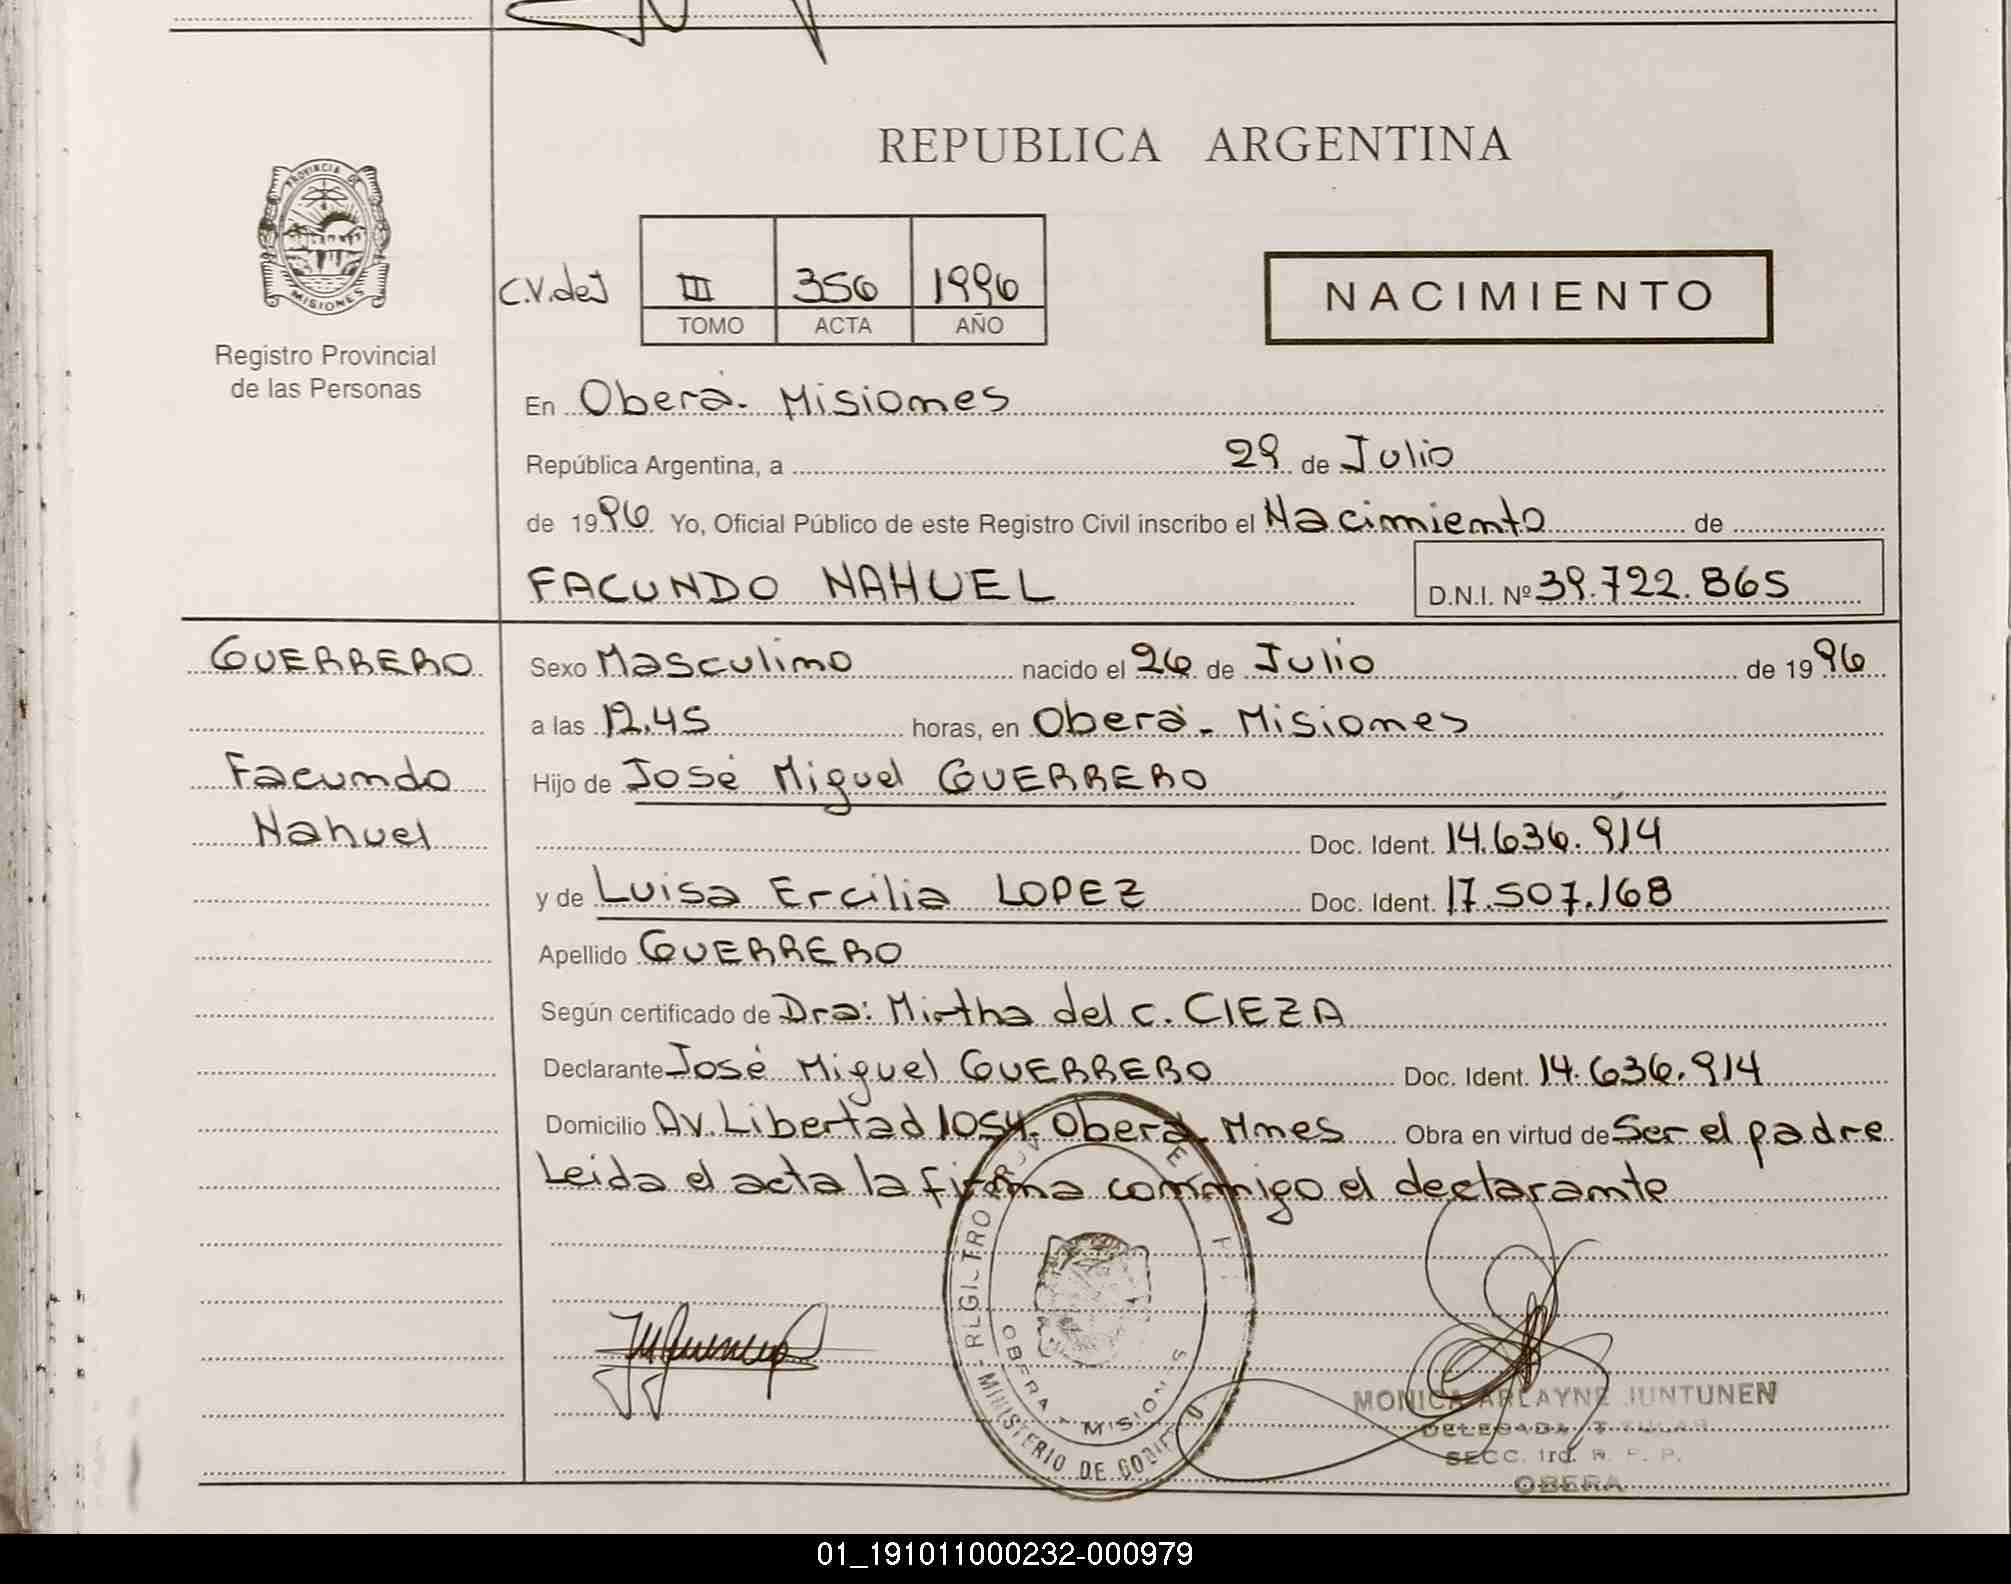 REPUBLICA ARGENTINA
PROVINCIA DE
MISIONES
Registro Provincial
de las Personas
C.V.deJ
III 356 1996
TOMO ACTA AÑO
NACIMIENTO
En Oberá- Misiones
República Argentina, a 29 de Julio
de 1996 Yo, Oficial Público de este Registro Civil inscribo el Nacimiento de
FACUNDO NAHUEL D.N.I. Nº 39.722.865
GUERRERO
Facundo
Nahuel
Sexo Masculino nacido el 26 de Julio de 1996
a las 12.45 horas, en Oberá- Misiones
Hijo de José Miguel GUERRERO
Doc. Ident. 14.636.914
y de Luisa Ercilia LOPEZ Doc. Ident. 17.507.168
Apellido GUERRERO
Según certificado de Dra: Mirtha del C. CIEZA
Declarante José Miguel GUERRERO Doc. Ident. 14.636.914
Domicilio Av. Libertad 1054, Oberá- Mnes Obra en virtud de Ser el padre
Leida el acta la firma conmigo el declarante
OBERA - MISIONES
MINISTERIO DE
MONICA ARLAYNE JUNTUNEN
DELEGADA TITULAR
SECC. 1ra. R. P. P.
OBERA
01_191011000232-000979